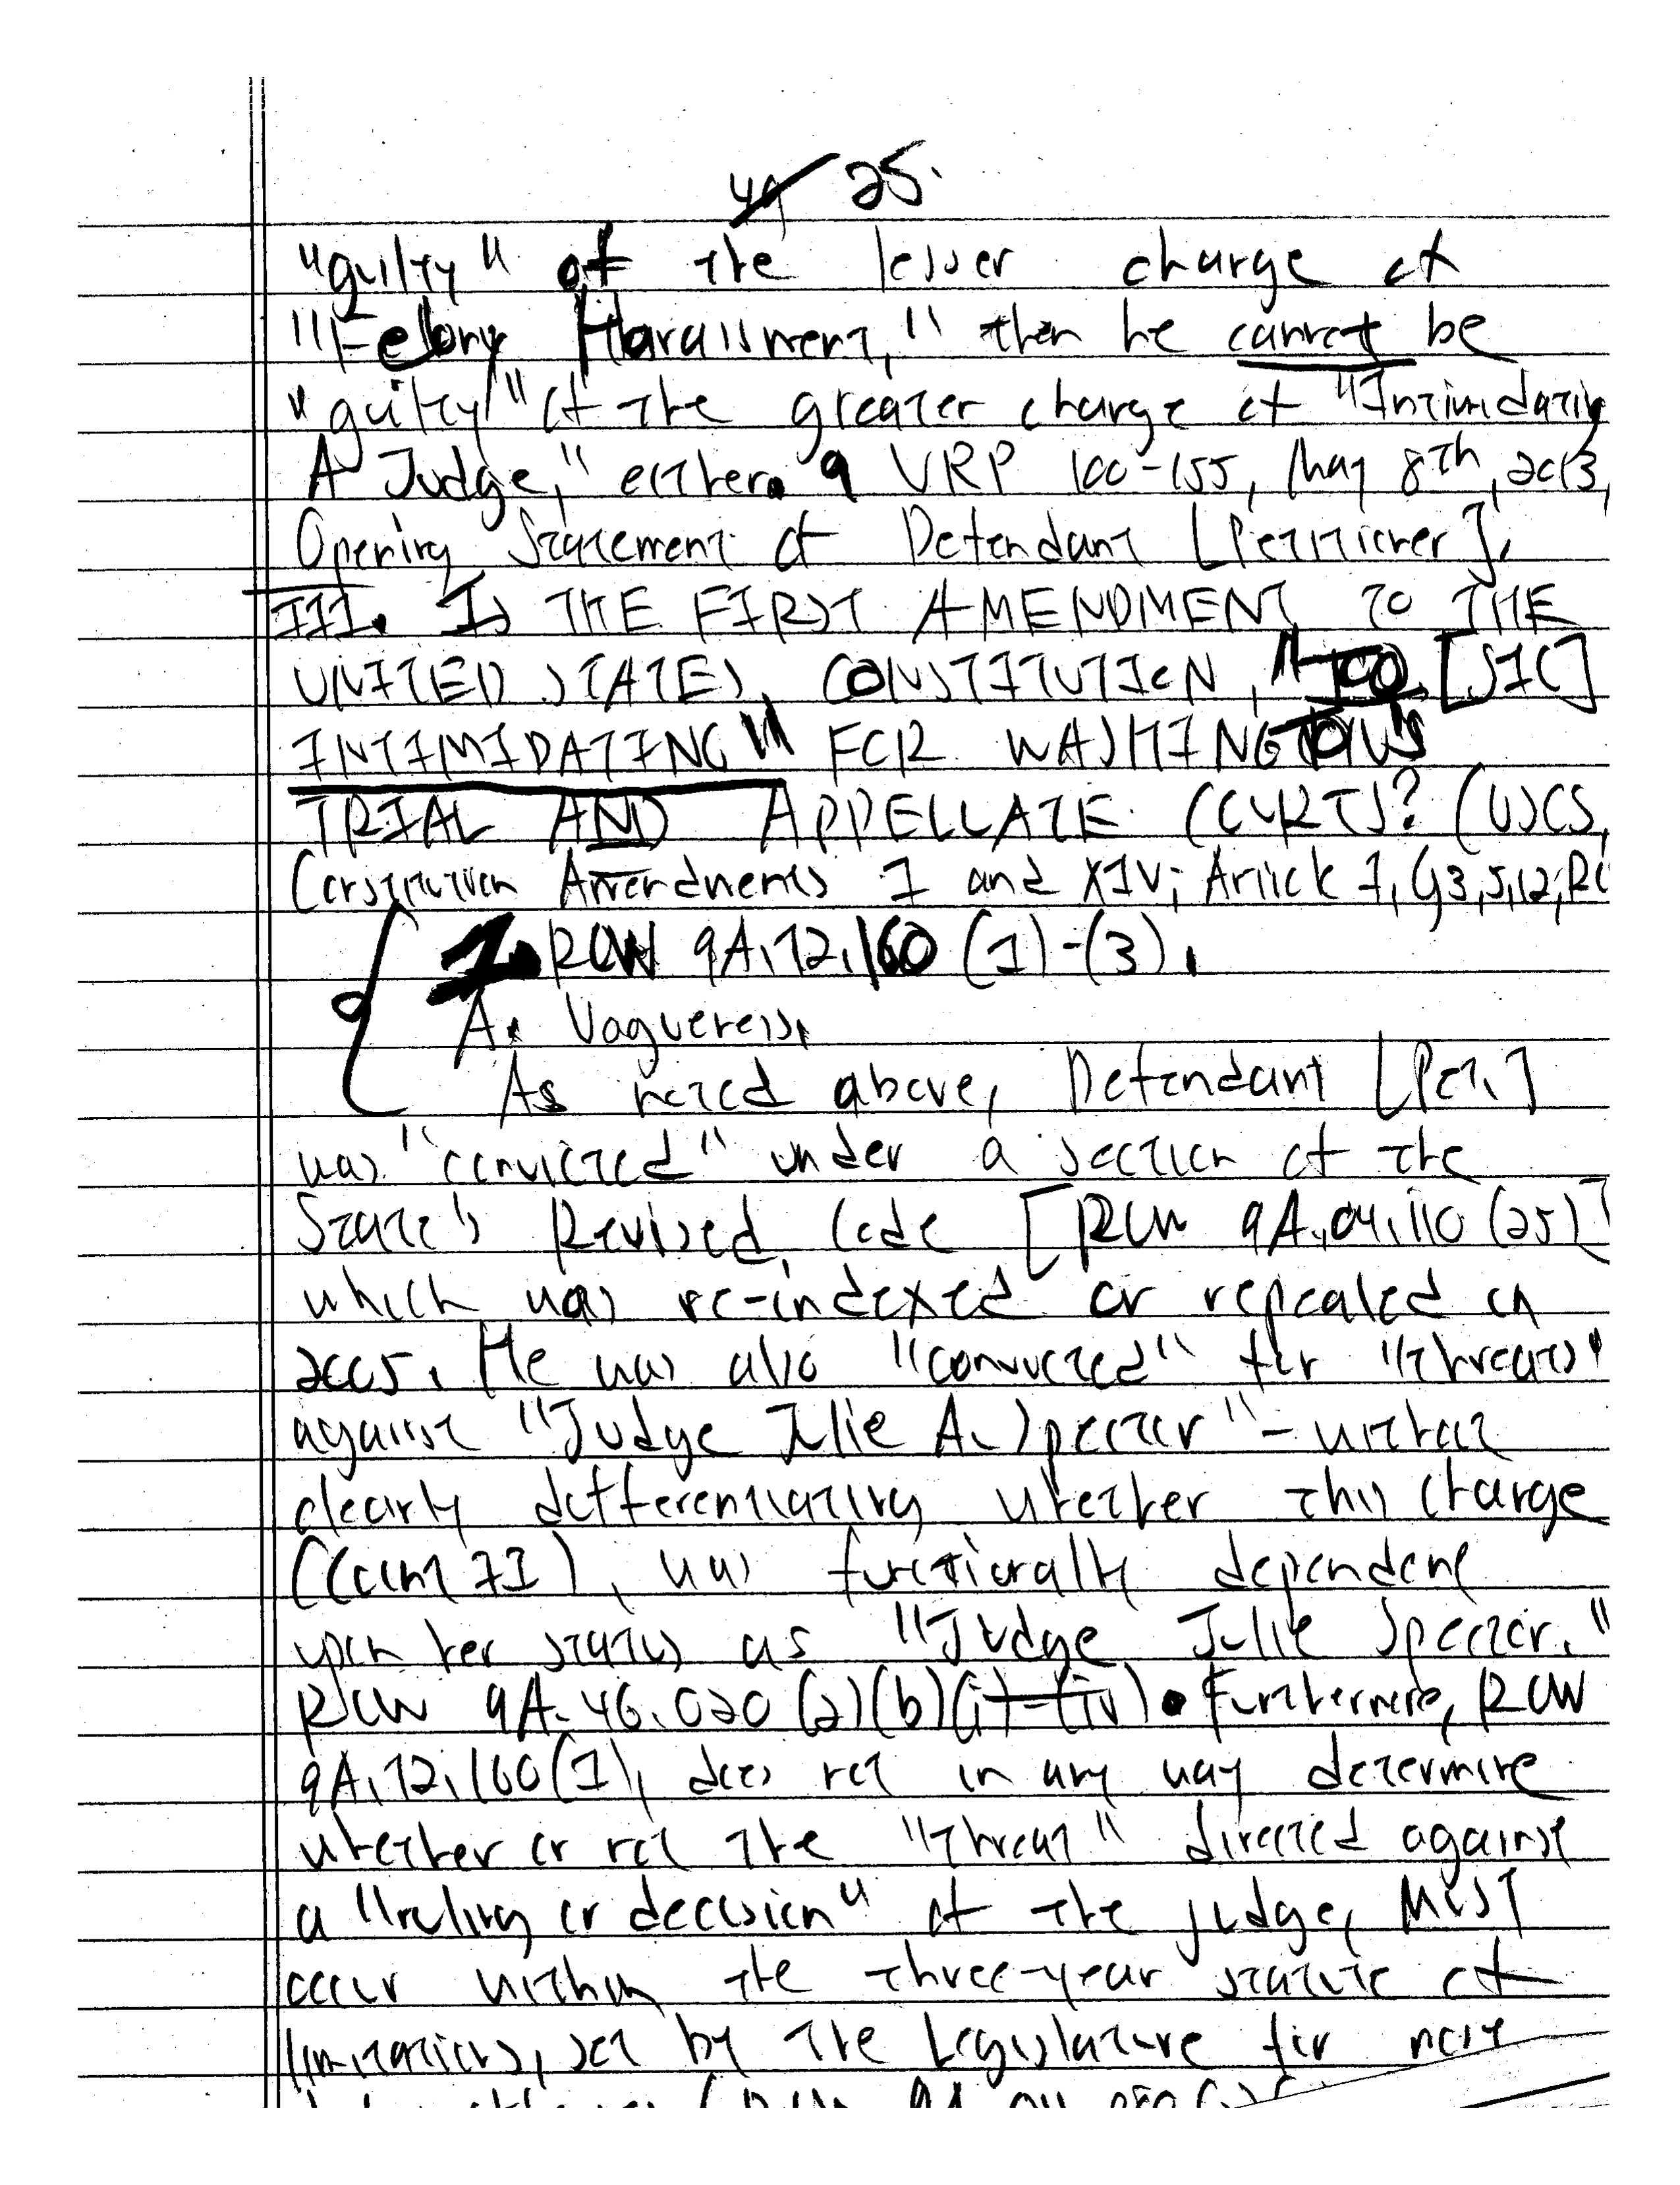 49 25.
"guilty" of the lesser charge of
"Felony Harassment," then he cannot be
"guilty" of the greater charge of "Intimidating
A Judge," either. 9 VRP 100-155, May 8th, 2013,
Opening Statement of Defendant [Petitioner].
III. Is THE FIRST AMENDMENT TO THE
UNITED STATES CONSTITUTION, "TOO [SIC]
INTIMIDATING" FOR WASHINGTON'S
TRIAL AND APPELLATE COURTS? (USCS,
Constitution Amendments I and XIV; Article I, §§3,5,12, RC
1. RCW 9A.72.160 (1)-(3).
A. Vagueness.
As noted above, Defendant [Pet.]
was "convicted" under a section of the
State's Revised Code [RCW 9A.04.110 (25)]
which was re-indexed or repealed in
2005. He was also "convicted" for "threats"
against "Judge Julie A. Spector" - without
clearly differentiating whether this charge
(Count II), was functionally dependent
upon her status as "Judge Julie Spector."
RCW 9A.46.020 (2)(b)(i)-(iv). Furthermore, RCW
9A.72.160(1), does not in any way determine
whether or not the "threat" directed against
a "ruling or decision" of the judge, MUST
occur within the three-year statute of
limitations, set by the Legislature for most